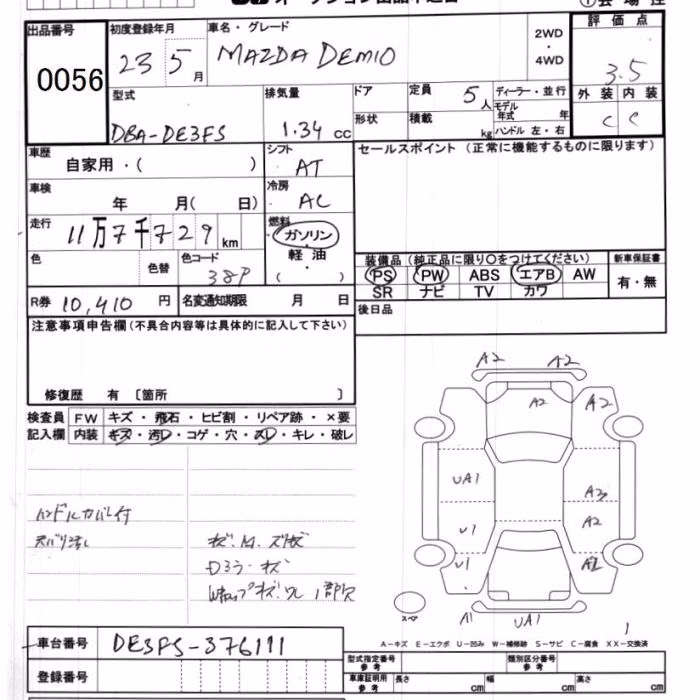 出品番号
0056
初度登録年月
23 5 月
車名・グレード
MAZDA DEMIO
2WD
・
4WD
評価点
3.5
型式
DBA-DE3FS
排気量
1.34 cc
ドア
形状
定員
5人
積載
kg
ディーラー・並行
モデル
年式 年
ハンドル 左・右
外装 内装
C C
車歴
自家用・( )
シフト
AT
セールスポイント (正常に機能するものに限ります)
車検
年 月( 日)
冷房
AC
走行
11万7千729km
燃料
ガソリン
・
軽油
・
( )
色
色替
色コード
38P
装備品 (純正品に限り○をつけてください)
新車保証書
PS PW ABS エアB AW
SR ナビ TV カワ
有・無
R券 10,410 円
名変通知期限 月 日
後日品
注意事項申告欄(不具合内容等は具体的に記入して下さい)
修復歴 有 〔箇所 〕
検査員 FW キズ・飛石・ヒビ割・リペア跡・×要
記入欄 内装 キズ・汚レ・コゲ・穴・スレ・キレ・破レ
ハンドルカバー付
A2 A2
A2 A2
UA1
A3
U1 A2
U1
スペア
A1 UA1
1
A－キズ E－エクボ U－凹み W－補修跡 S－サビ C－腐食 XX－交換済
車台番号 DE3FS-376111
登録番号
型式指定番号
参考
類別区分番号
参考
車庫証明用
参考
長さ cm 幅 cm 高さ cm